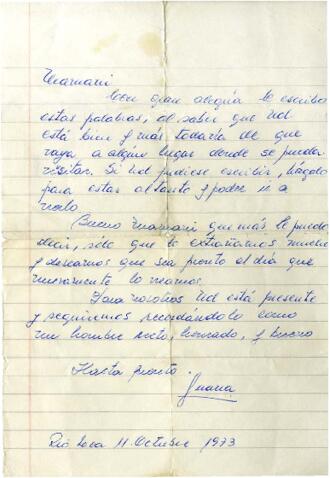 Mamani
Con gran alegría le escribo
estas palabras, al saber que Ud
está bien y más todavía de que
vaya a algún lugar donde se pueda
visitar. Si Ud pudiese escribir, hágalo
para estar al tanto y poder ir a
verlo
Bueno Mamani que más le puedo
decir, sólo que lo extrañamos mucho
y deseamos que sea pronto el día que
nuevamente lo veamos.
Para nosotros Ud está presente
y seguiremos recordándolo como
un hombre recto, honrado, y bueno
Hasta pronto.
Juana
Río Loa 11. Octubre 1973